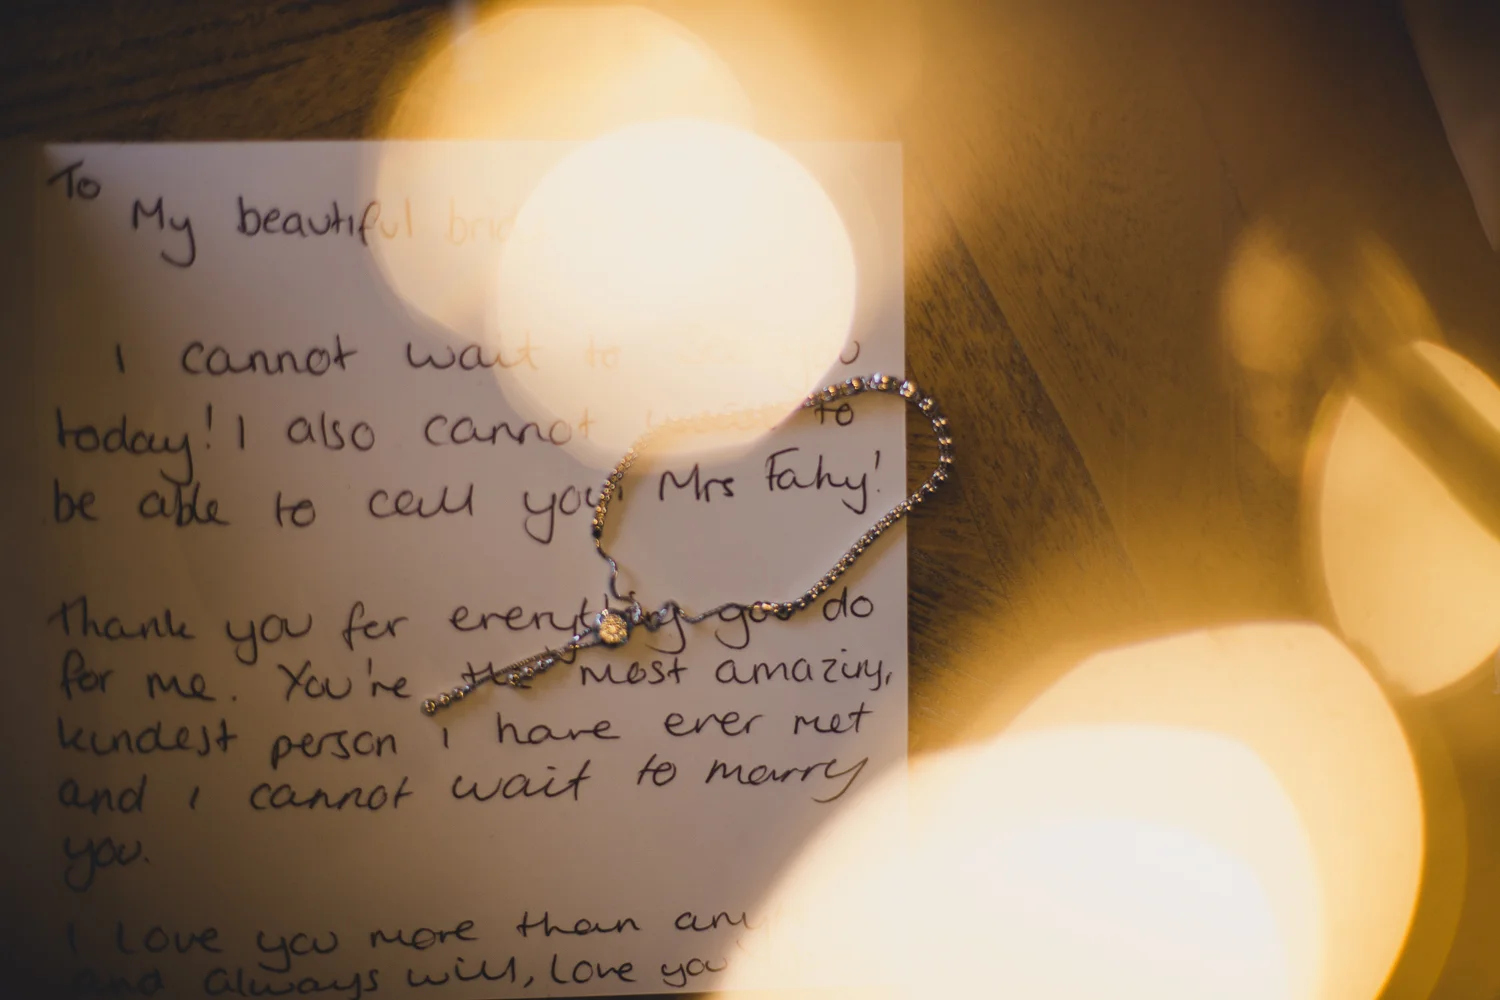 To
My beautiful bride
I cannot wait to see you
today! I also cannot wait to
be able to call you Mrs Fahy!
Thank you for everything you do
for me. You're the most amazing,
kindest person I have ever met
and I cannot wait to marry
you.
I love you more than
and always will, love you